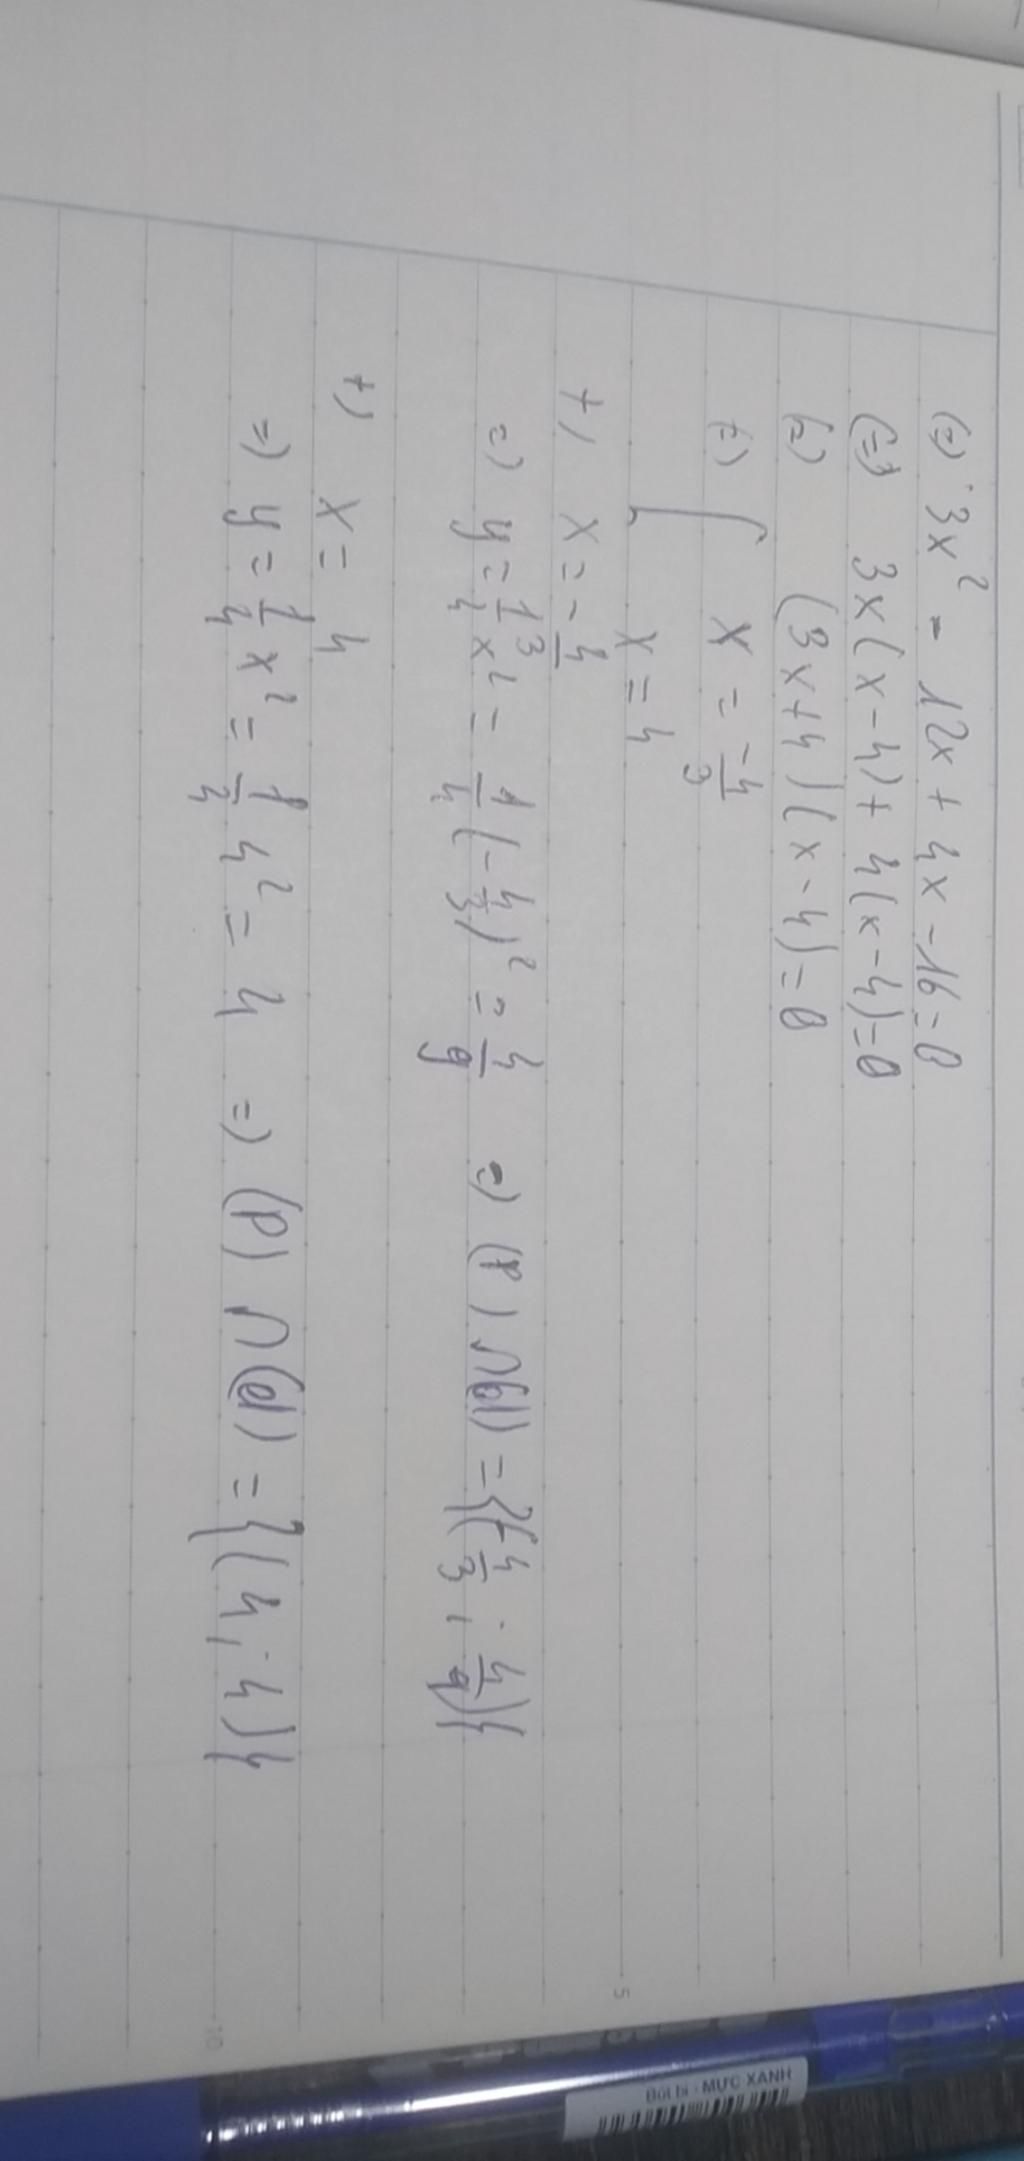 (=) 3x² - 12x + 4x - 16 = 0
(=) 3x(x-4) + 4(x-4) = 0
(=) (3x+4)(x-4) = 0
(=) [ x = -4/3
x = 4
+) x = -4/3
=) y = 1/4 x² = 1/4 (-4/3)² = 4/9 =) (P) ∩ (d) = {(-4/3 ; 4/9)}
+) x = 4
=) y = 1/4 x² = 1/4 4² = 4 =) (P) ∩ (d) = {(4; 4)}
5
10
Bút bi - MỰC XANH